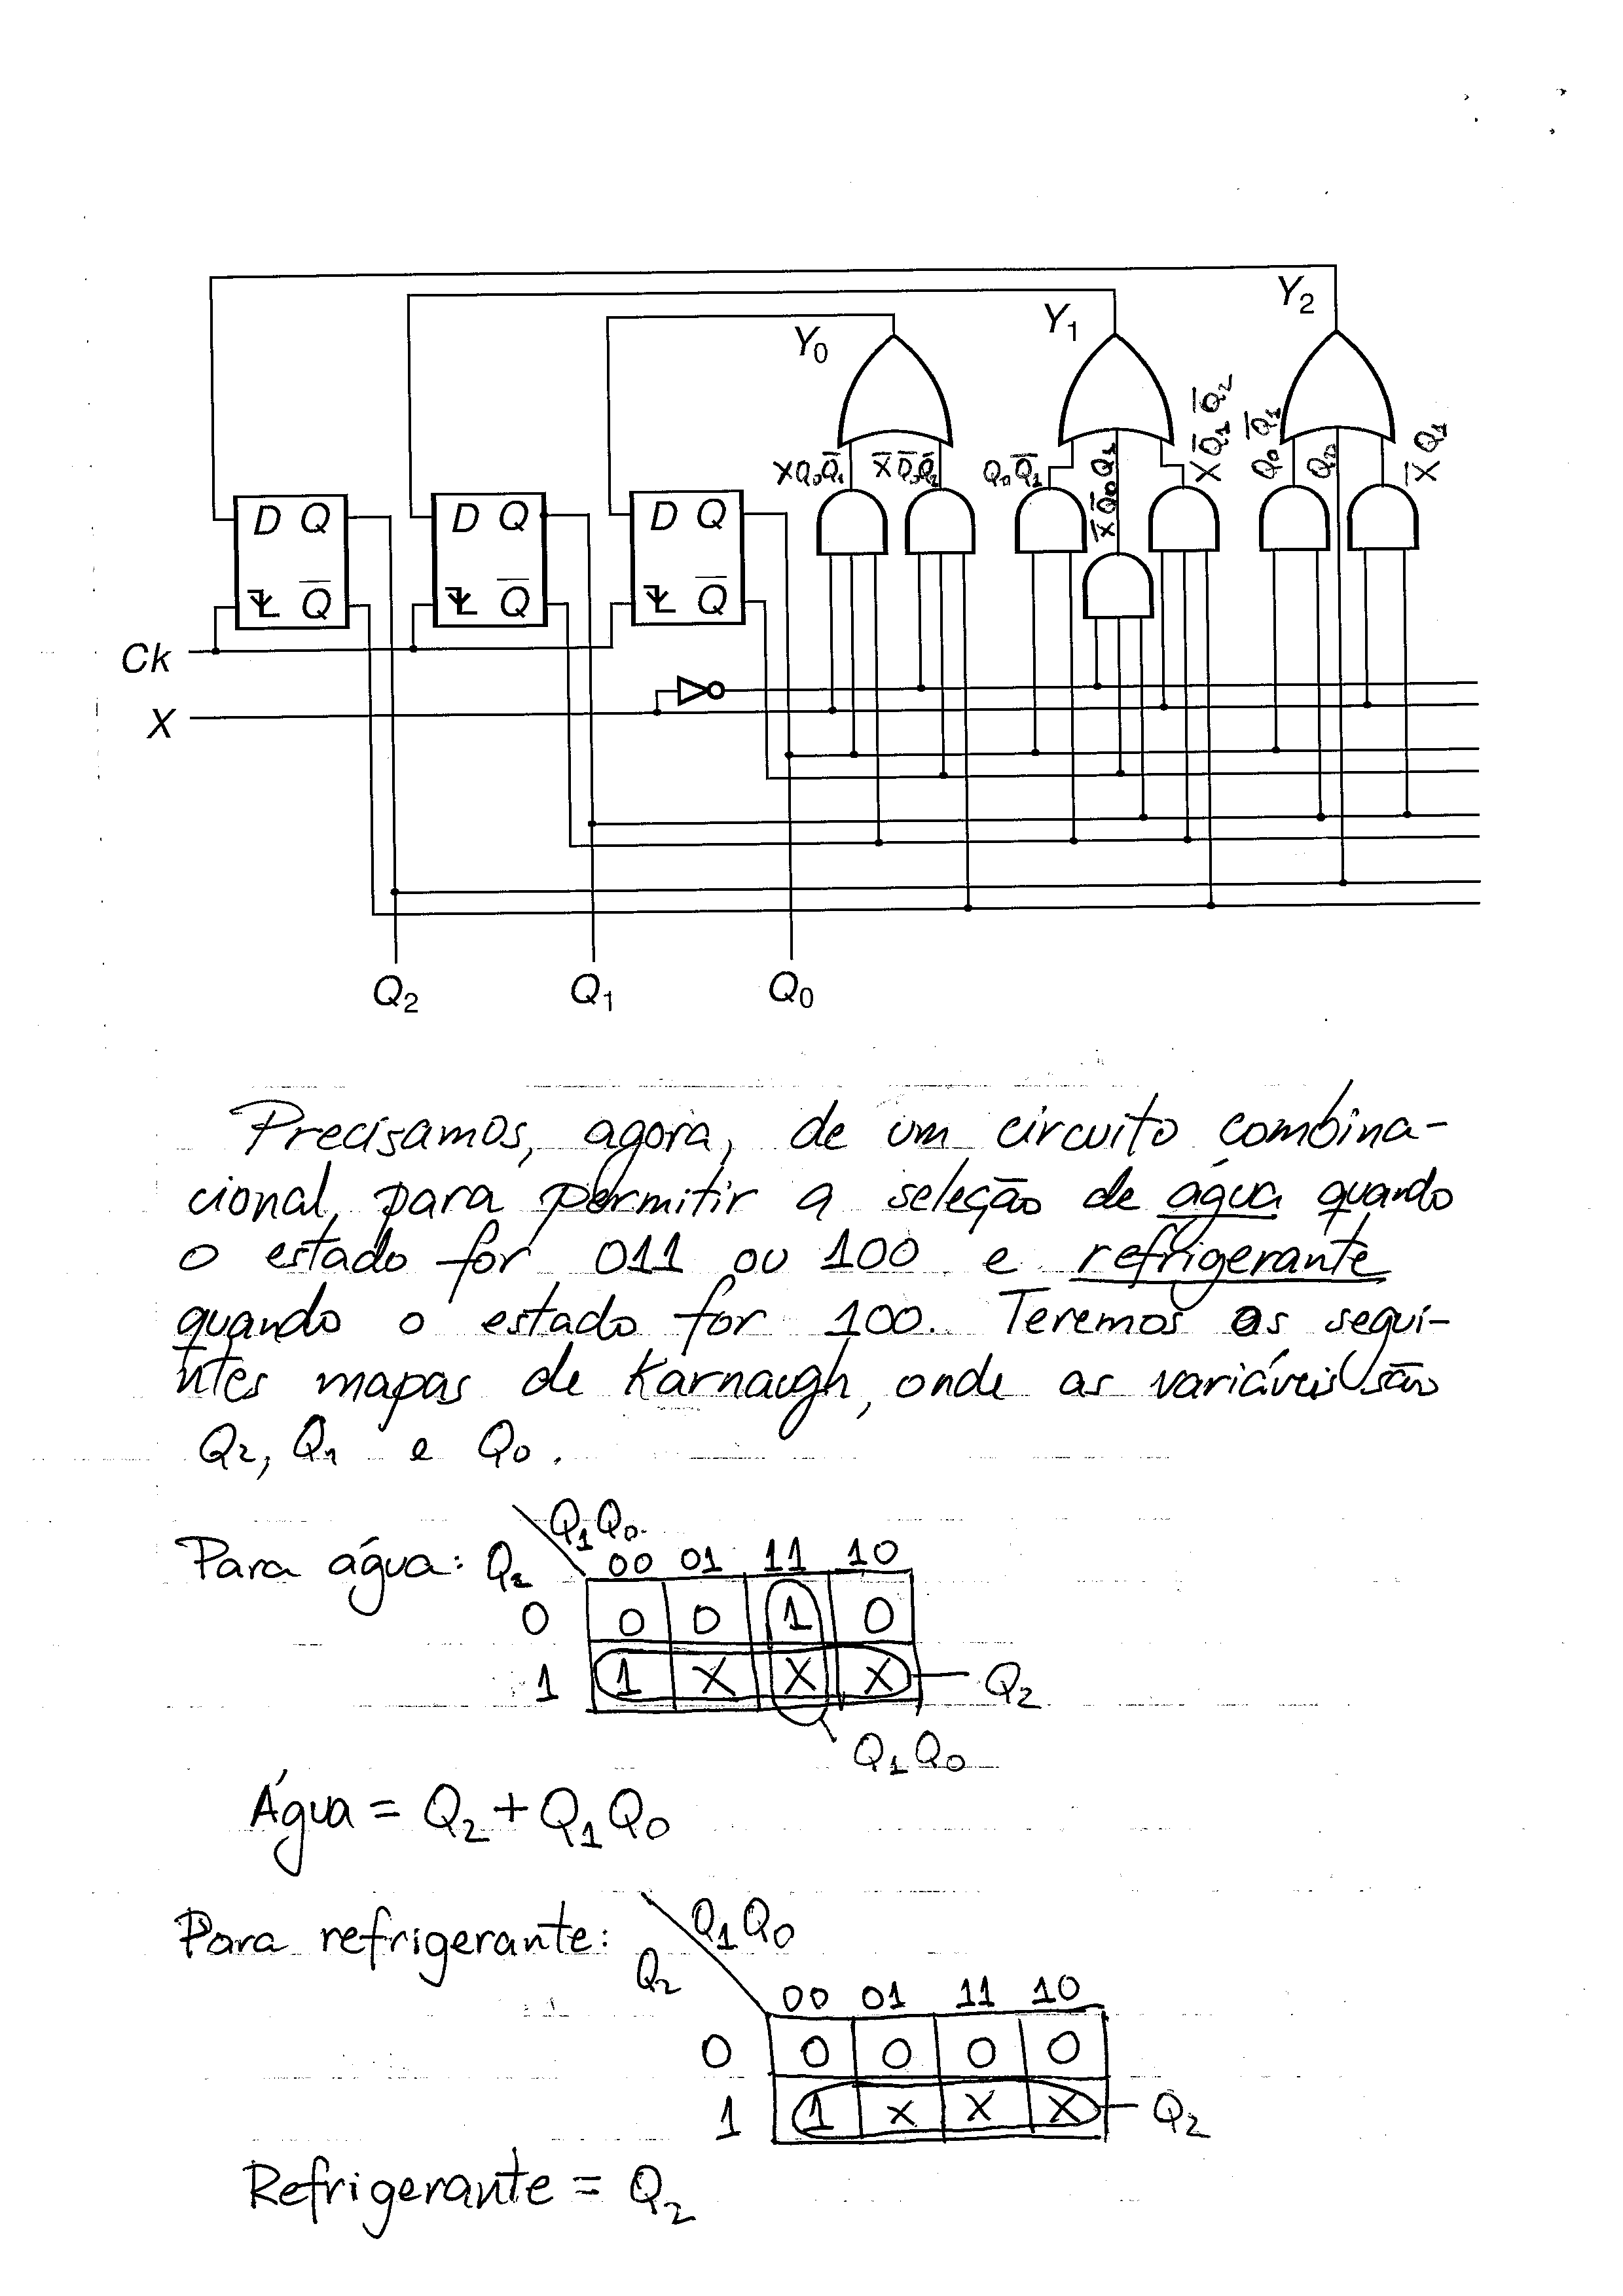 Y₂
Y₁
Y₀
XQ₀Q̅₁ X̅Q̅₀Q̅₂ Q₀Q̅₁ X̅Q̅₀Q₁ XQ̅₁Q̅₂ Q₀Q̅₁ Q₂ X̅Q₁
D Q D Q D Q
Q̅ Q̅ Q̅
Ck
X
Q₂ Q₁ Q₀
Precisamos, agora, de um circuito combina-
cional, para permitir a seleção de água quando
o estado for 011 ou 100 e refrigerante
quando o estado for 100. Teremos os segui-
ntes mapas de Karnaugh, onde as variáveis são
Q₂, Q₁ e Q₀.
Para água: Q₂ Q₁Q₀
00 01 11 10
0 0 0 1 0
1 1 X X X Q₂
Q₁Q₀
Água = Q₂ + Q₁Q₀
Para refrigerante: Q₂ Q₁Q₀
00 01 11 10
0 0 0 0 0
1 1 X X X Q₂
Refrigerante = Q₂